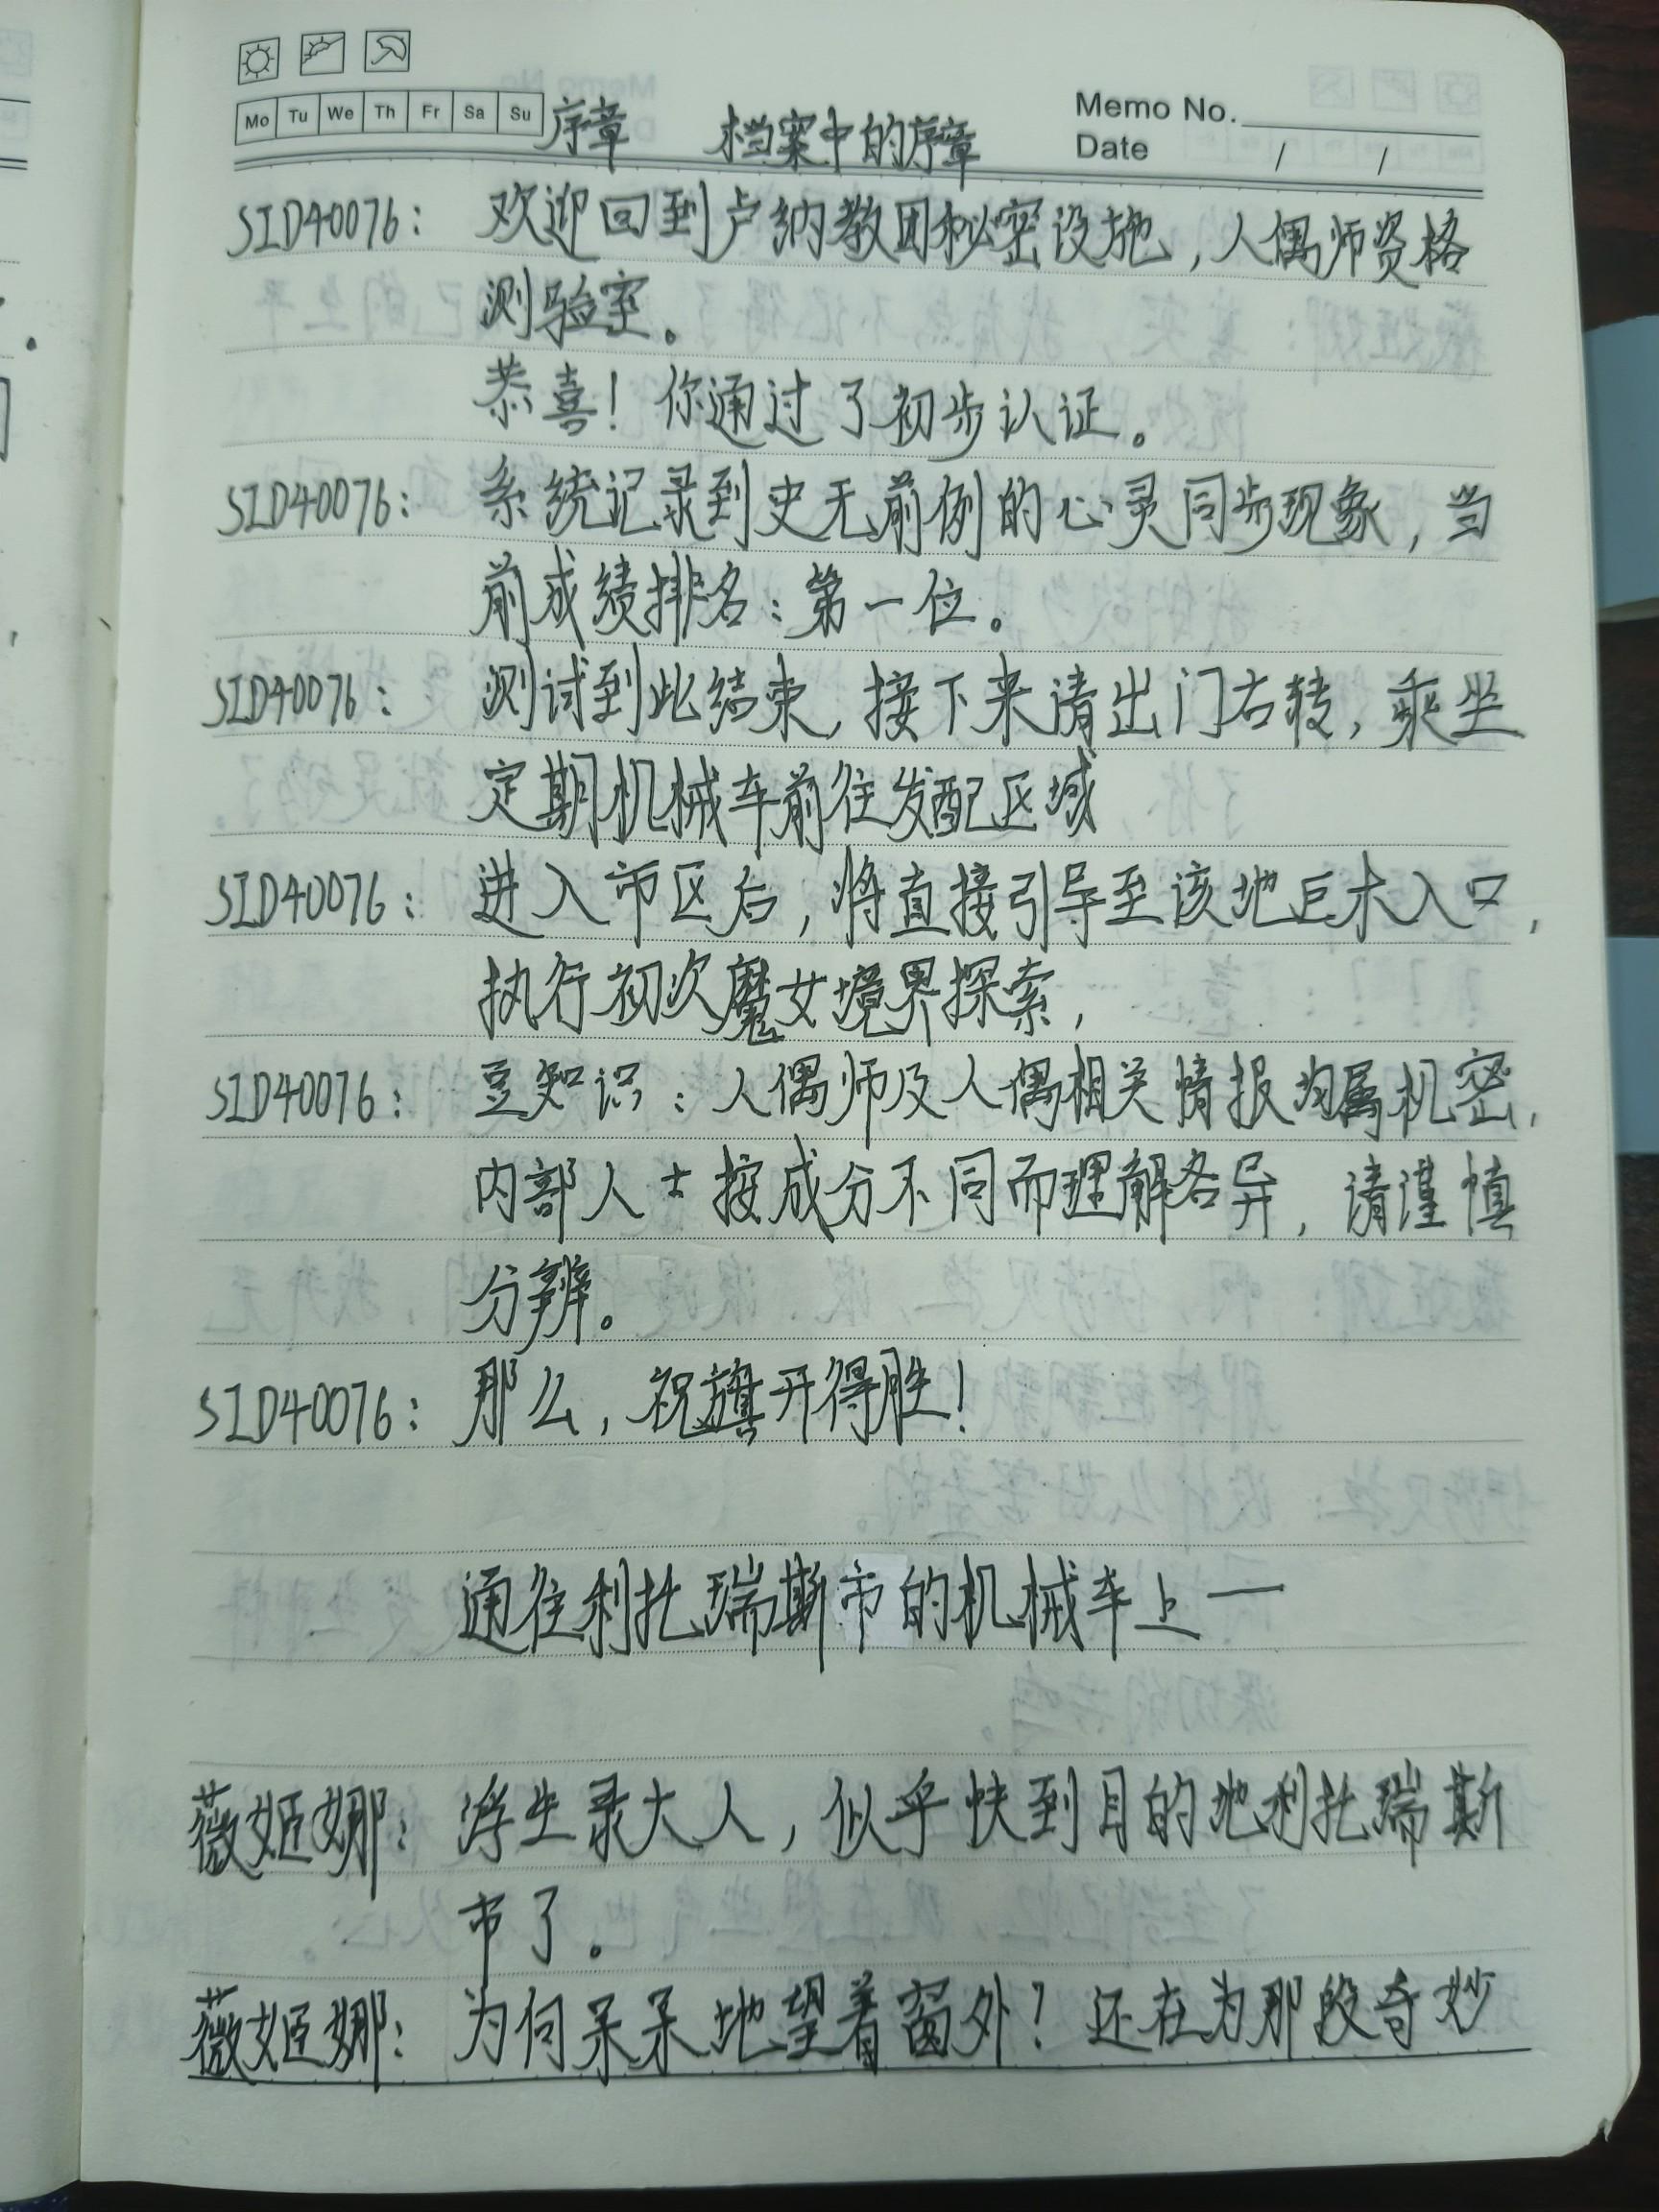 Mo Tu We Th Fr Sa Su
序章 档案中的序章
Memo No.
Date / /
SID40076: 欢迎回到卢纳教团秘密设施,人偶师资格
测验室。
恭喜!你通过了初步认证。
SID40076: 系统记录到史无前例的心灵同步现象,当
前成绩排名:第一位。
SID40076: 测试到此结束,接下来请出门右转,乘坐
定期机械车前往发配区域
SID40076: 进入市区后,将直接引导至该地巨木入口,
执行初次魔女境界探索,
SID40076: 豆知识:人偶师及人偶相关情报均属机密,
内部人士按成分不同而理解各异,请谨慎
分辨。
SID40076: 那么,祝旗开得胜!
通往利托瑞斯市的机械车上一
薇姬娜: 浮生录大人,似乎快到目的地利托瑞斯
市了。
薇姬娜: 为何呆呆地望着窗外?还在为那段奇妙